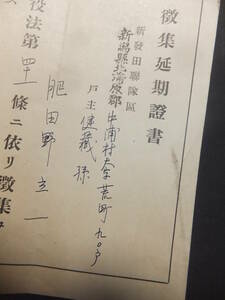 徴集延期證書
新發田聯隊區
新潟縣北蒲原郡中浦村大字荒町九〇戸
戸主健藏孫
肥田野圭一
役法第四十一條ニ依リ徴集